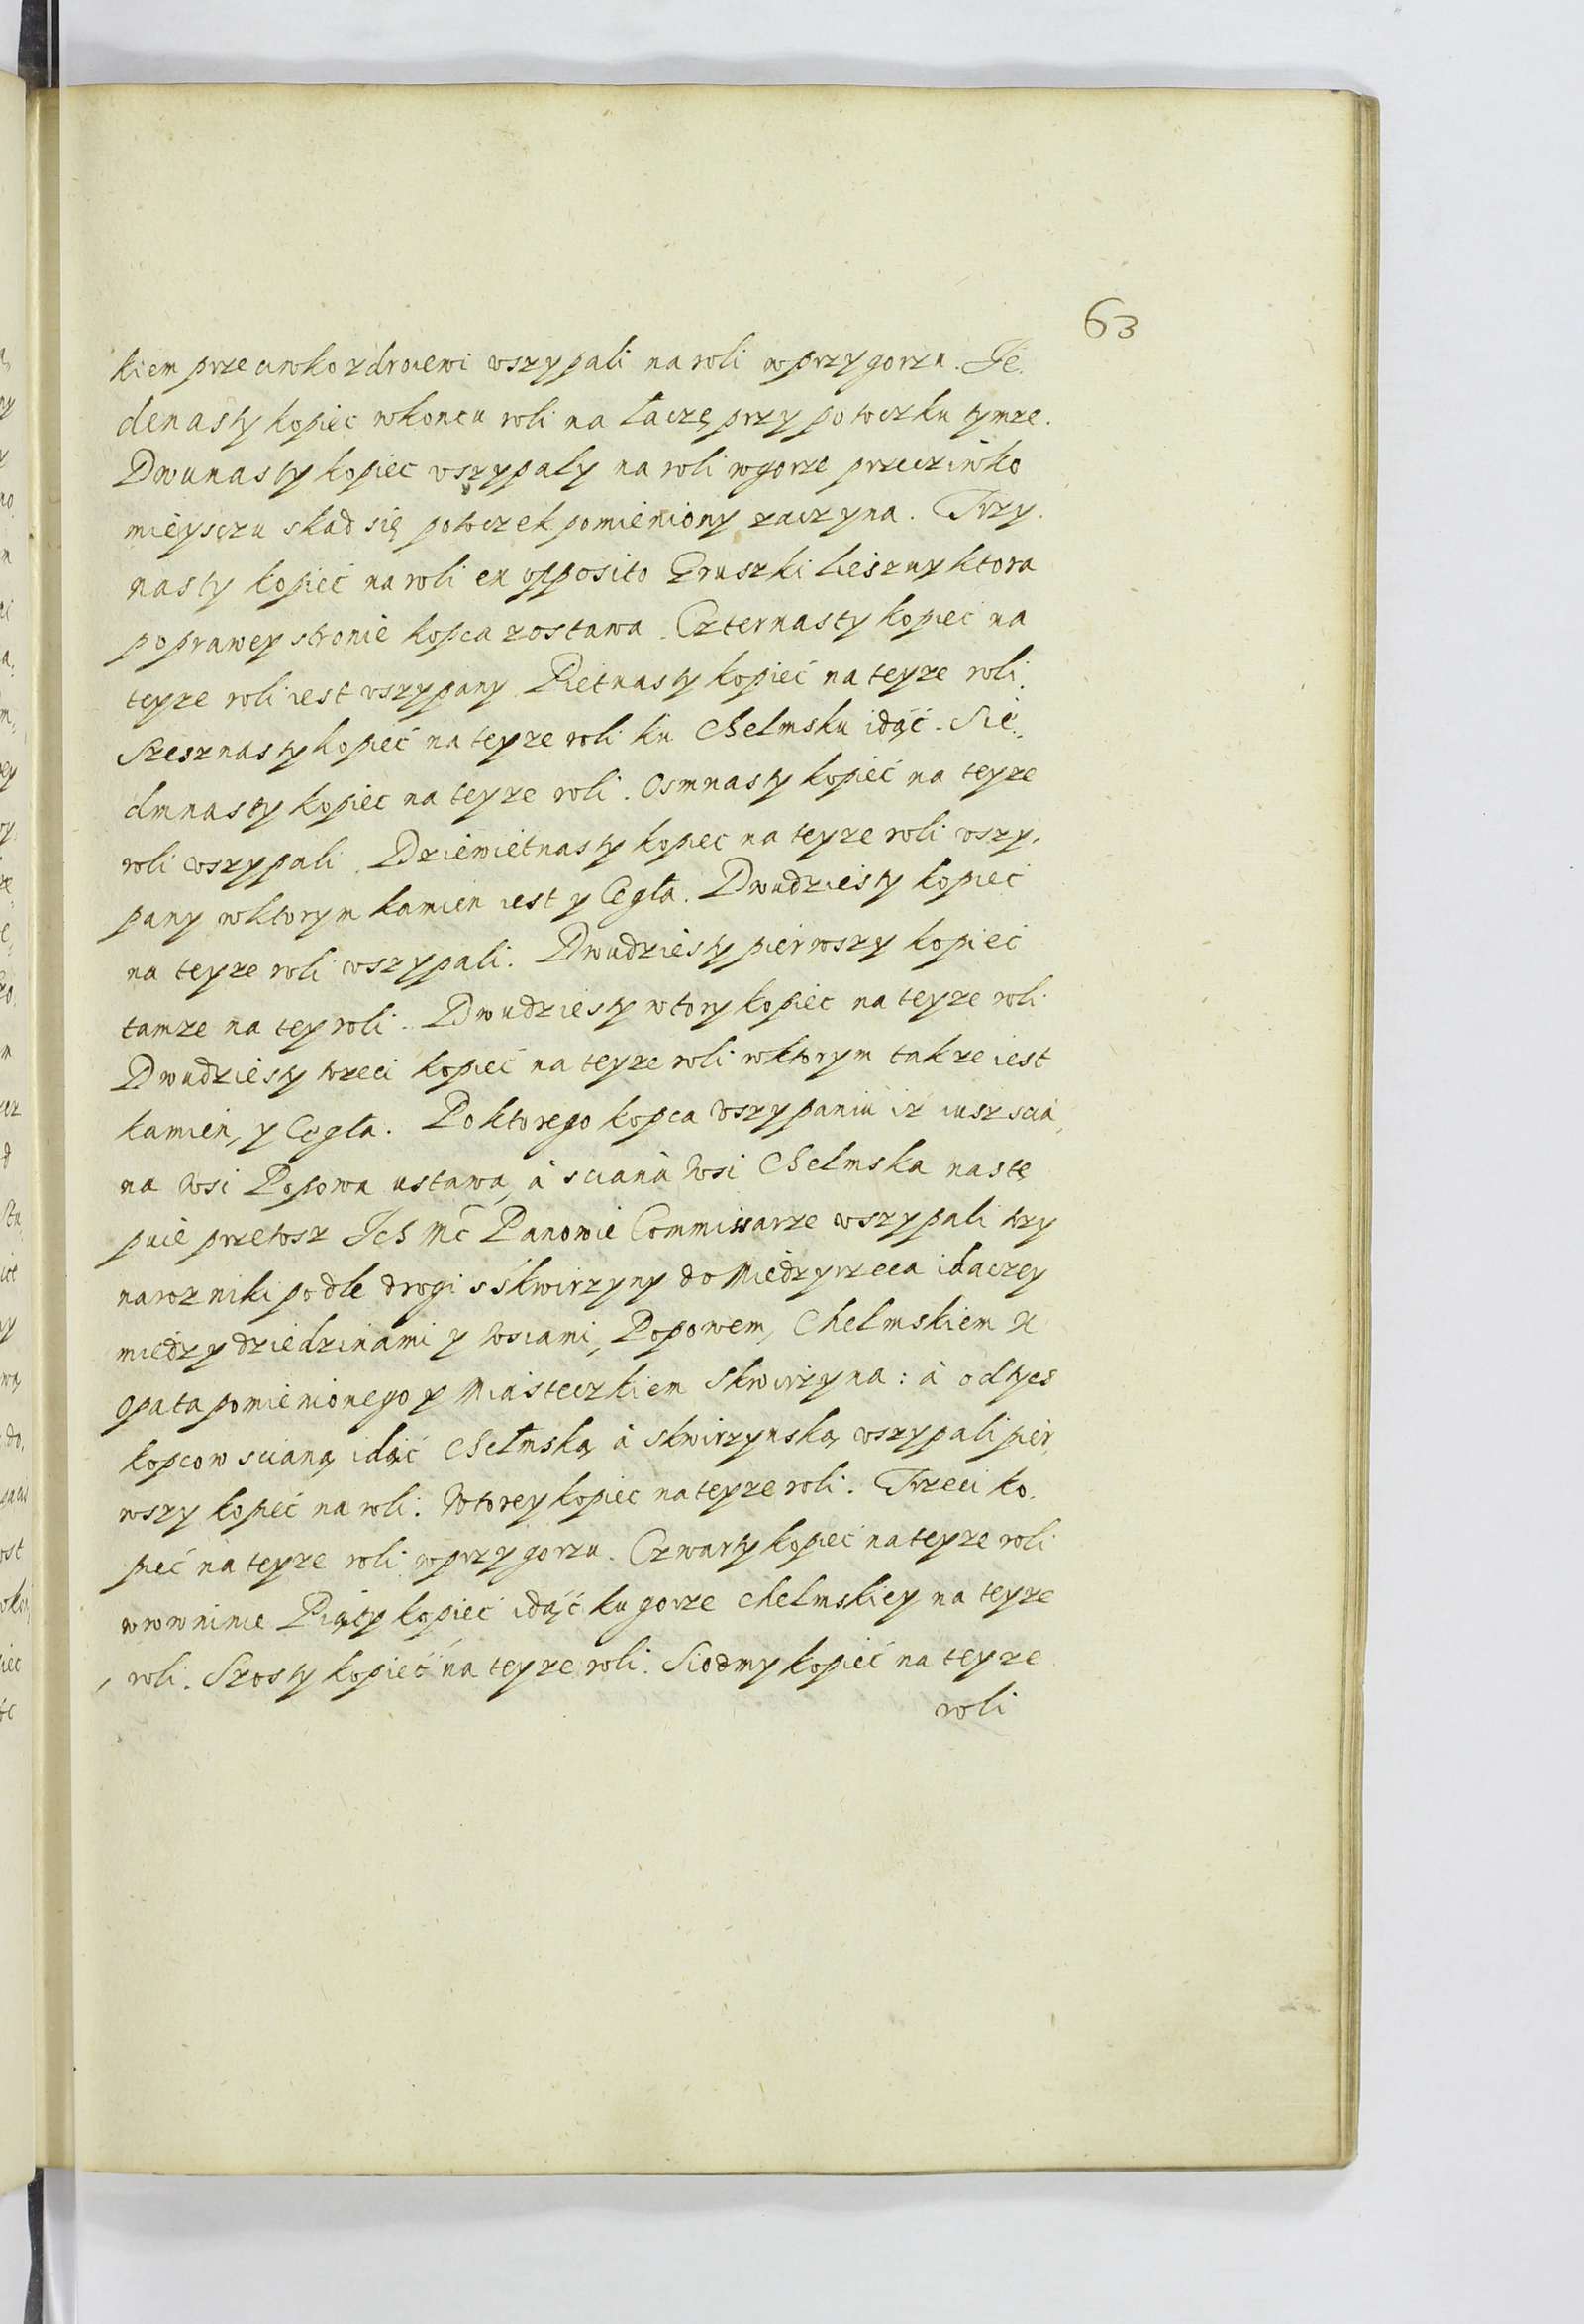 63
kiem przeciwko zdroiewi vszypali na roli w przygorzu. Je.
denasty kopiec wkoncu roli na łaczę przy potoczku tymze.
Dwunasty kopiec vszypały na roli wgorze przeciwko
mieysczu skad się potoczek pomieniony zaczyna. Trzy.
nasty kopieć na roli ex opposito Gruszki lieszny ktora
poprawey stronie kopca zostawa. Czternasty kopieć na
teyze roli iest vszypany Pietnasty kopieć na teyze roli.
Szesznasty kopieć na teyze roli ku Chełmsku idąć. Sie.
dmnasty kopiec na teyze roli. Osmnasty kopieć na teyze
roli vszypali. Dziewietnasty kopec na teyze roli vszy.
pany wktorym kamien iest y Cegła. Dwudziesty kopieć
na teyze roli vszypali. Dwudziesty pierwszy kopieć
tamze na tey roli. Dwudziesty wtory kopiec na teyze roli
Dwudziesty trzeci kopieć na teyze roli wktorym takze iest
kamien, y Cegła. Po ktorego kopca vszypaniu iz iusz scia,
na wsi Popowa ustawa, à sciana wsi Chełmska nastę
puie przetosz Ich Mć Panowie Commissarze vszypali trzy
narozniki podle drogi s Skwirzyny do Miedzyrzeca idaczey
miedzy dziedzinami y wsiami, Popowem, Chełmskiem X
Opata pomienionego y Miasteczkiem Skwirzyna: à odtych
kopcow scianą idąć Chełmską à Skwirzynską vszypali pier,
wszy kopieć na roli. Wtorey kopiec na teyze roli. Trzeci ko.
pieć na teyze roli w przygorzu. Czwarty kopieć na teyze roli
wrowninie Piąty kopieć idąć ku gorze Chełmskiey na teyze
roli. Szosty kopieć na teyze roli. Siodmy kopieć na teyze
roli